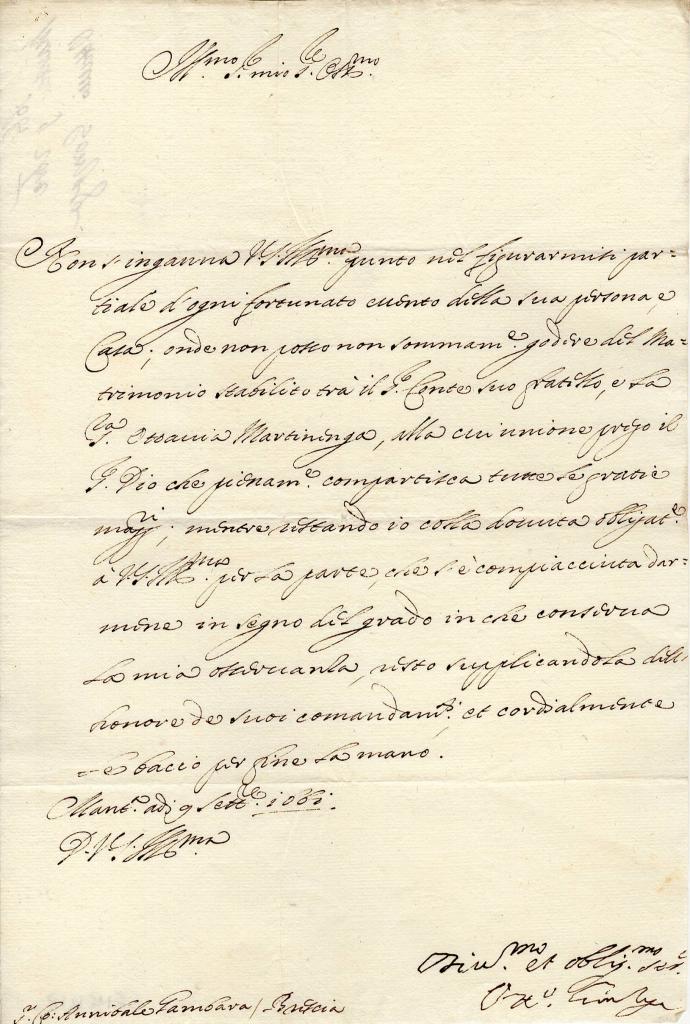 Ill.mo S.r mio S.r Oss.mo
Non s'inganna V.S. Ill.ma punto nel figurarmiti par=
tiale d'ogni fortunato evento della sua persona, e
Casa; onde non posso non sommam.e godere del Ma=
trimonio stabilito trà il S.r Conte suo fratello, e la
S.ra Ottavia Martinenga, alla cui unione prego il
S.r Dio che pienam.e compartisca tutte le gratie
magg.ri; mentre restando io colla dovuta obligat.e
à V.S. Ill.ma per la parte, che s'è compiacciuta dar=
mene in segno del grado in che conserva
la mia osservanza, resto supplicandola dell'
honore de suoi comandam.ti et cordialmente
=le bacio per fine la mano.
Mant.a adi 9 Sett.e 1661.
D. V. S. Ill.ma
Div.mo et oblig.mo ser.
S.r Co: Annibale Gambara / Brescia